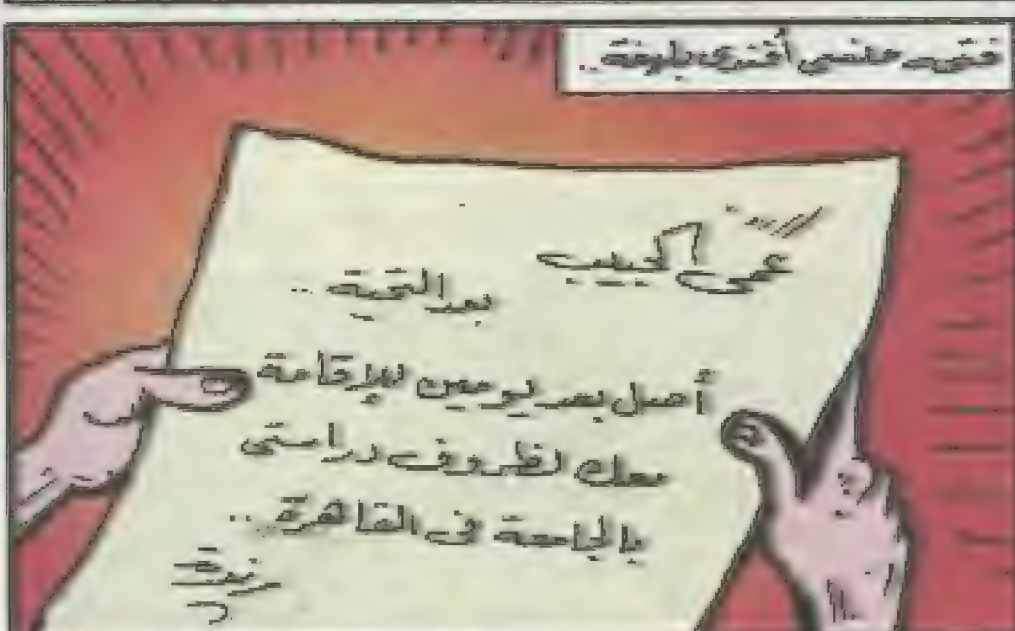 فتحه حنفي أفندي بلهفة..
عمى الحبيب
بعد التحية..
أصل بعد يومين للإقامة
معك لظروف دراستي
بالجامعة فى القاهرة..